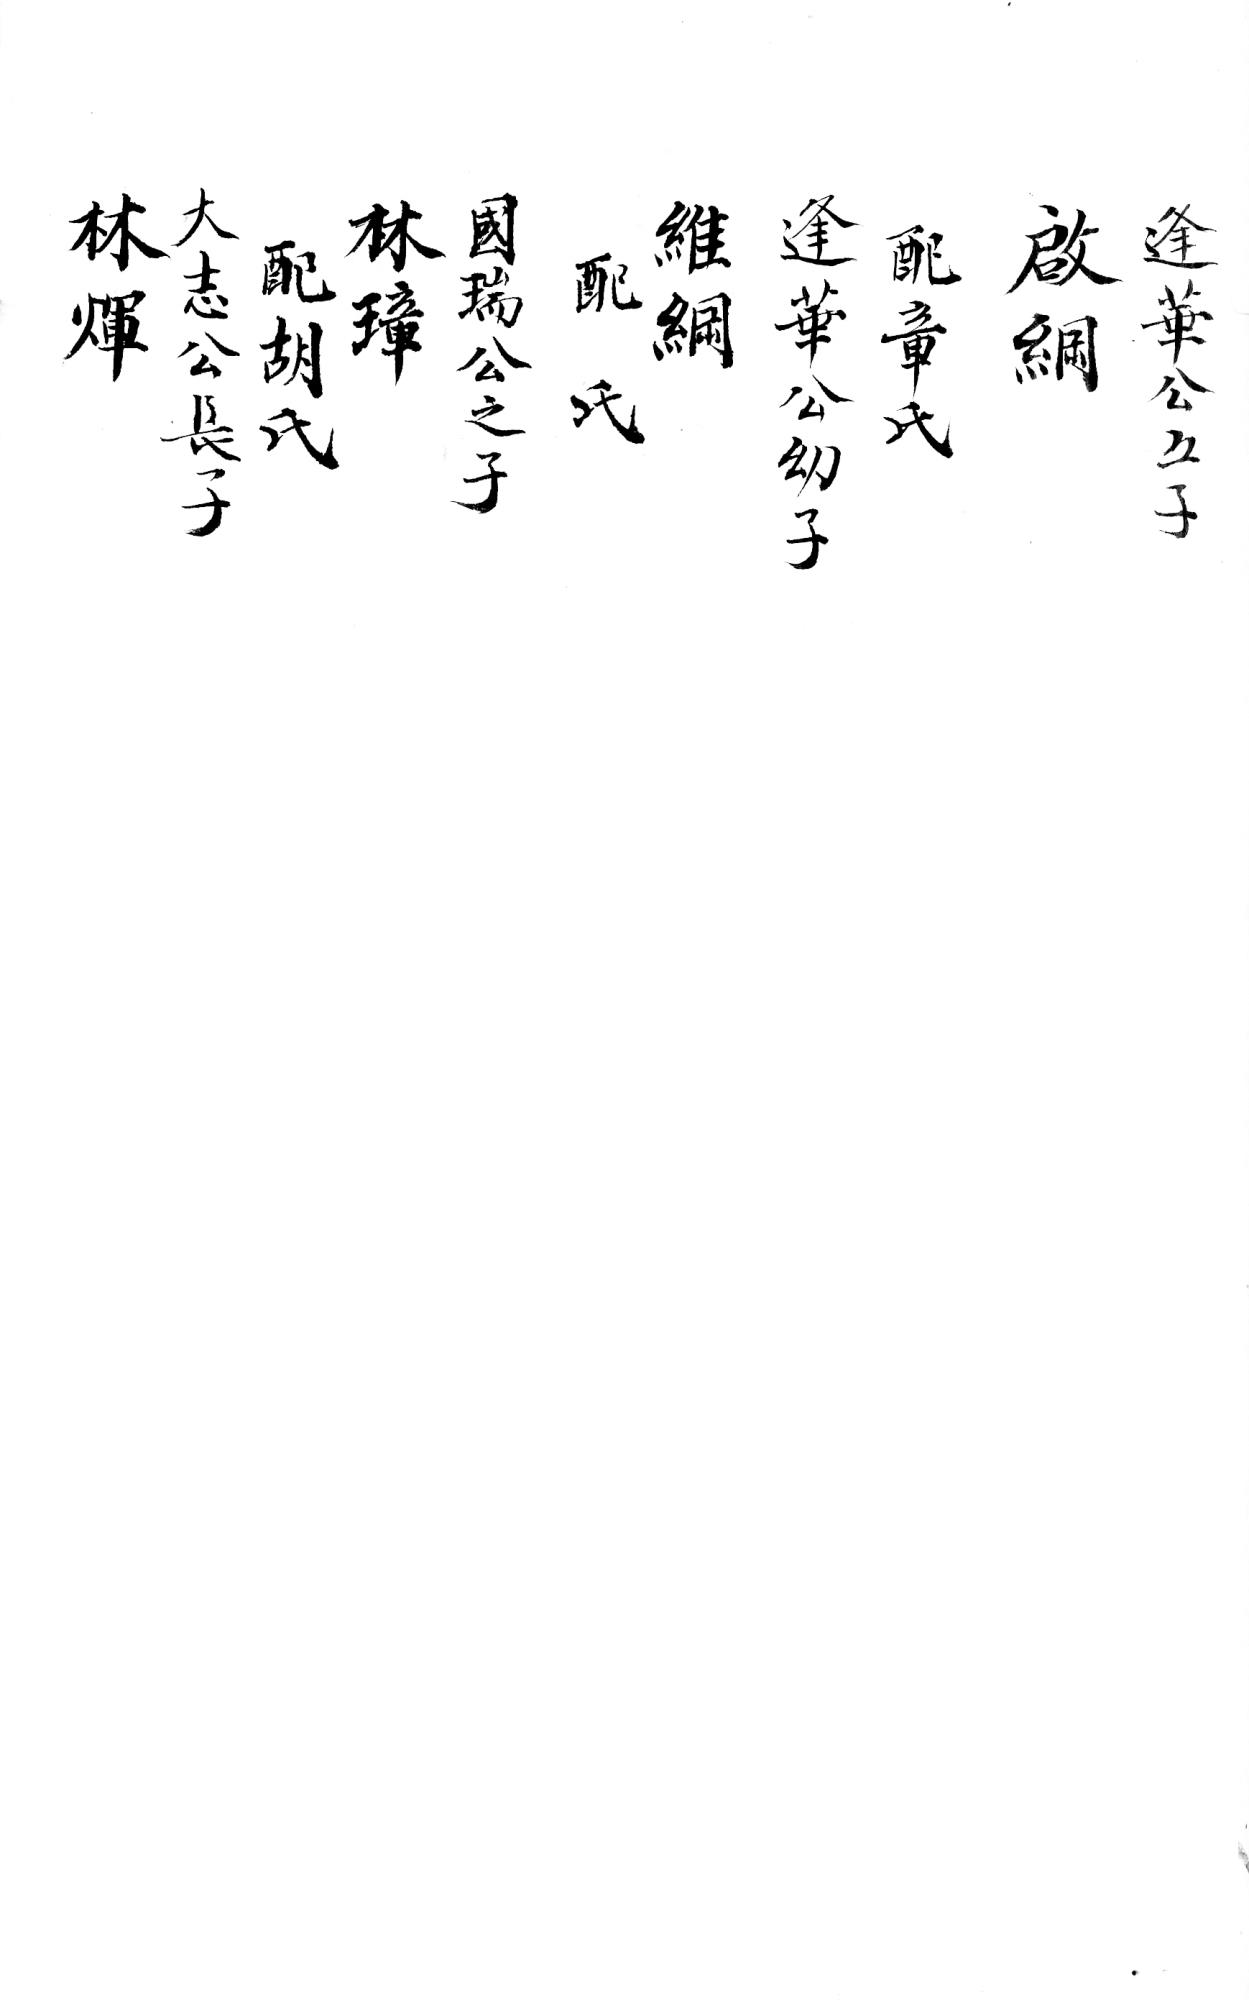 逢華公五子
啟綱
配章氏
逢華公幼子
維綱
配 氏
國瑞公之子
林璋
配胡氏
大志公長子
林煇